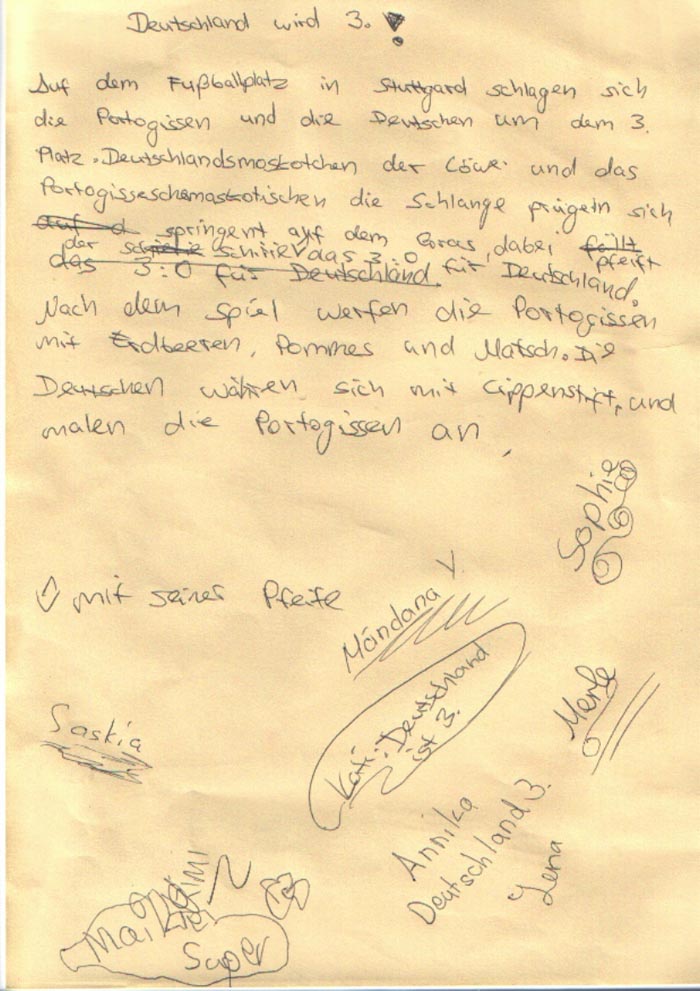 Deutschland wird 3. !
Auf dem Fußballplatz in Stuttgard schlagen sich
die Portogissen und die Deutschen um dem 3.
Platz. Deutschlandsmaskotchen der Löwe und das
Portogisseschemaskotischen die Schlange prügeln sich
auf d springent auf dem Gras, dabei fällt pfeift
der schrie schrier das 3:0 für Deutschland.
das 3:0 für Deutschland.
Nach dem Spiel werfen die Portogissen
mit Erdbeeren, Pommes und Matsch. Die
Deutschen währen sich mit Lippenstift, und
malen die Portogissen an.
Sophie
mit seiner Pfeife
Mándana Y.
Saskia
Kati: Deutschland
ist 3.
Merle
Annika
Deutschland 3.
Lena
Mai
Super